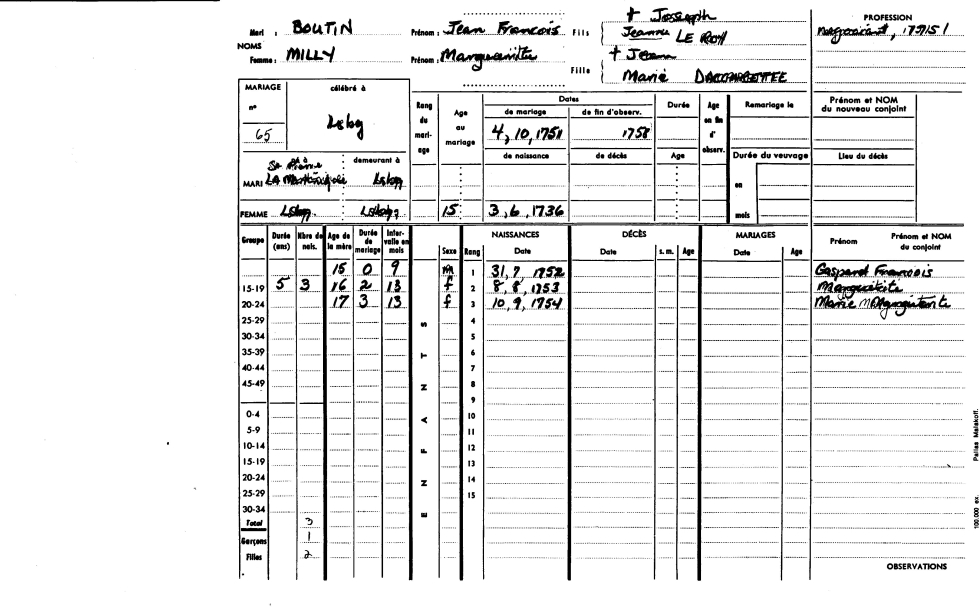 Mari : BOUTIN Prénom : Jean Francois Fils { + Joseph
Jeanne LE ROY
PROFESSION
1751
NOMS
Femme : MILLY Prénom : Marguerite Fille { + Jean
Marie
MARIAGE
célébré à
n°
65
Rang du mariage
Age au mariage
Dates
de mariage
de fin d'observ.
Durée
Age en fin d' observ.
Remariage le
Prénom et NOM du nouveau conjoint
4, 10, 1751
1758
de naissance
de décès
Age
Durée du veuvage
Lieu du décès
à
demeurant à
St Pierre
MARI
en
FEMME
15
3, 6, 1736
mois
Groupe
Durée (ans)
Nbre de nais.
Age de la mère
Durée de mariage
Intervalle en mois
ENFANTS
Sexe
Rang
NAISSANCES
Date
DÉCÈS
Date
s. m.
Age
MARIAGES
Date
Age
Prénom
Prénom et NOM du conjoint
15 0 9 M 1 31, 7, 1752 Gaspard Francois
15-19 5 3 16 2 13 f 2 8, 8, 1753 Marguerite
20-24 17 3 13 f 3 10, 9, 1754 Marie Marguerite
25-29 4
30-34 5
35-39 6
40-44 7
45-49 8
9
0-4 10
5-9 11
10-14 12
15-19 13
20-24 14
25-29 15
30-34
Total 3
Garçons 1
Filles 2
OBSERVATIONS
100.000 ex. Pallas Malakoff.